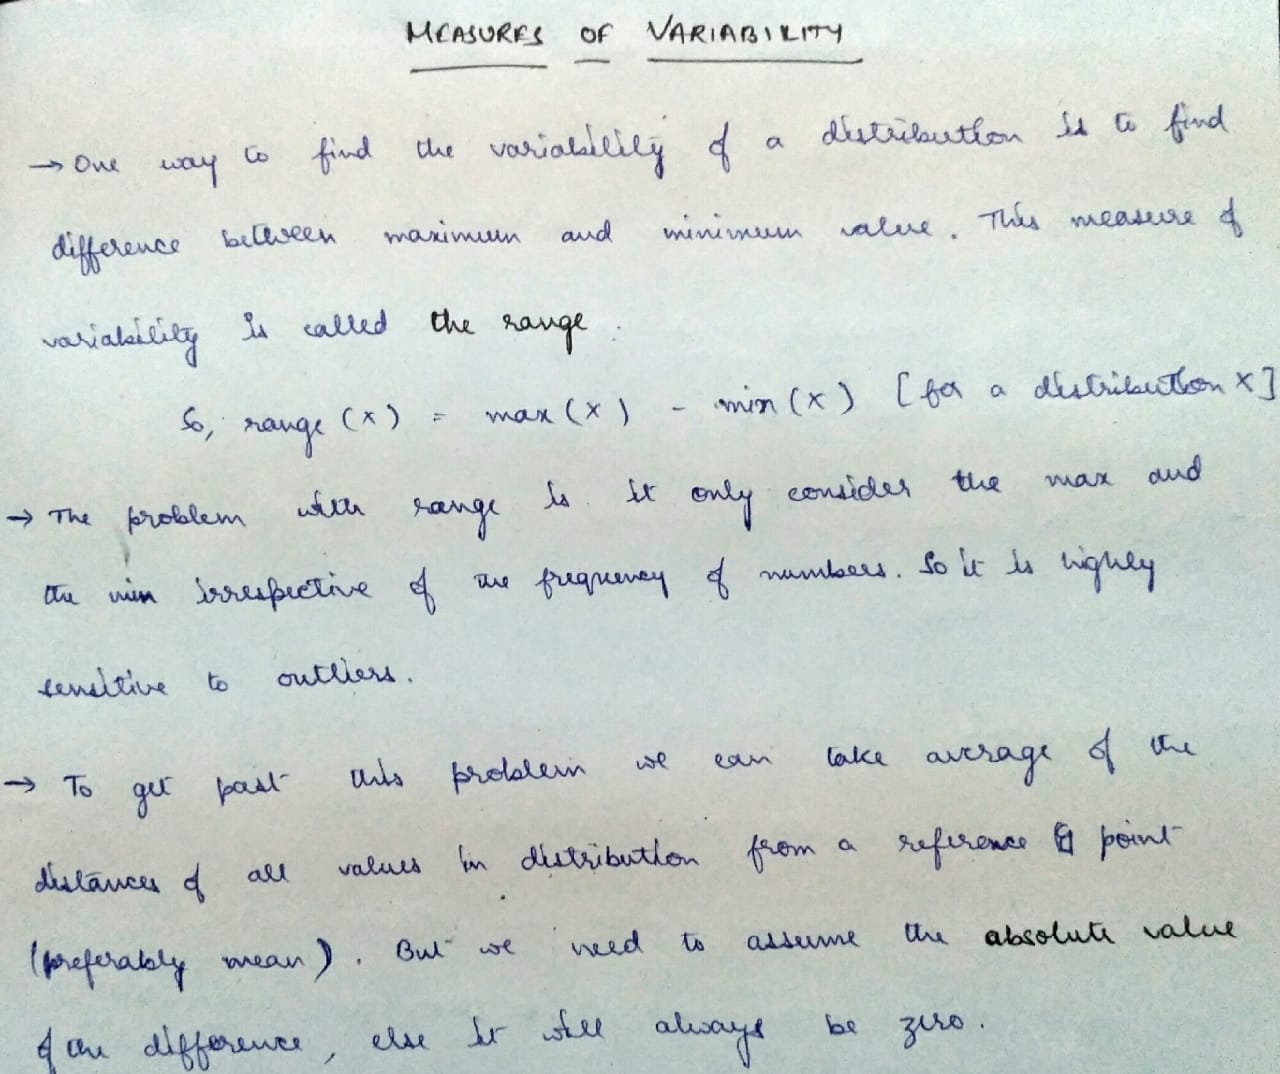 MEASURES OF VARIABILITY
→ One way to find the variability of a distribution is to find
difference between maximum and minimum value. This measure of
variability is called the range.
So, range (x) = max (x) - min (x) [for a distribution x]
→ The problem with range is it only consider the max and
the min irrespective of the frequency of numbers. So it is highly
sensitive to outliers.
→ To get past this problem we can take average of the
distances of all values in distribution from a reference point
(preferably mean). But we need to assume the absolute value
of the difference, else it will always be zero.